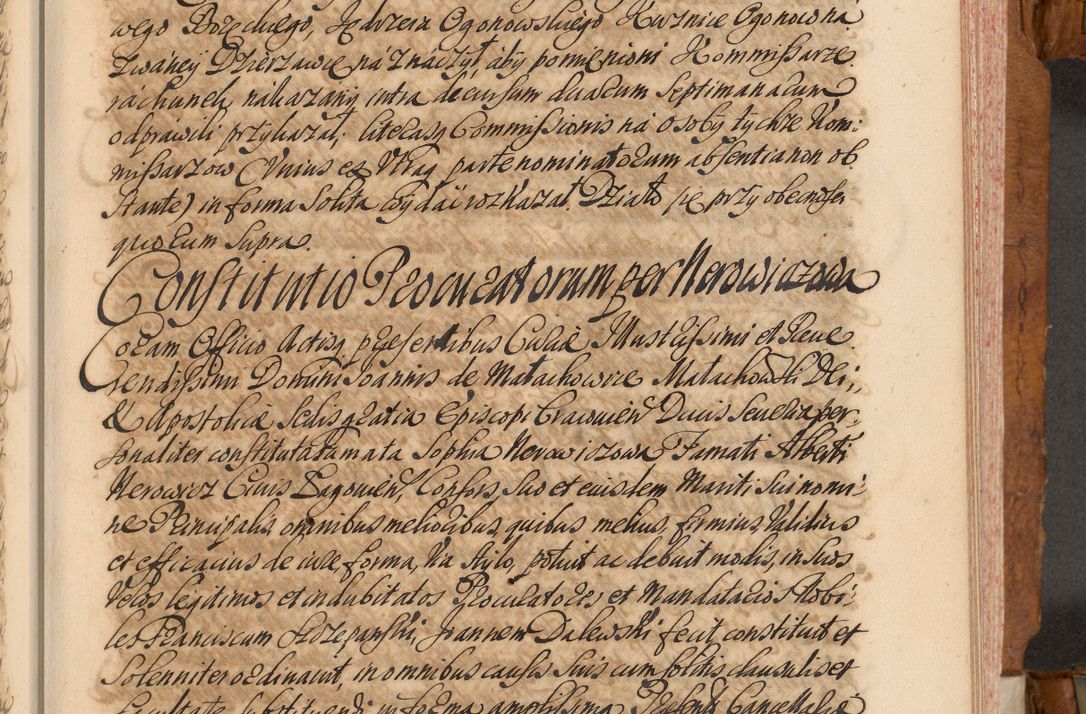 wego Borzckiego, Jędrzeia Ogonowskiego Kuznice Ogonow na
zwáney Dzierzawię náznaczył áby pomienioni Kommissarze
ráchunek nakazány intra decursum duarum Septimanarum
odpráwili przykazał, literasq Commissionis ná Osoby tychże Kom:
missarzow (Unius ex Utraq parte nominatorum absentia non ob
stante) in forma solita wydáć rozkazał. Działo się przy obecnosci
quorum supra.
Constitutio Procuratorum per Nerowiczowa
Coram Officio Actisq præsentibus Curiæ Illustrissimi et Reve
rendissimi Domini Joannis de Małachowice Małachowski Dei,
& Apostolicæ Sedis gratia Episcopi Cracovien Ducis Severiæ per:
sonaliter constituta famata Sophia Nerowiczowa Famati Alberti
Nerowicz Civis Łagovien Consors suo et eiusdem Mariti sui nomi:
ne Principalis, omnibus melioribus, quibus melius, firmius, Validius
et efficacius de iure, forma, Via stylo, potuit ac debuit modis, in suos
Veros legitimos et indubitatos Procuratores, et Mandatarios Nobi:
les Franciscum Szczepański, Joannem Dalewski fecit, constituit et
solenniter ordinavit, in omnibus causis suis cum solitis clausulis et
facultate substituendi in forma amplissima Præsent Cancellariæ